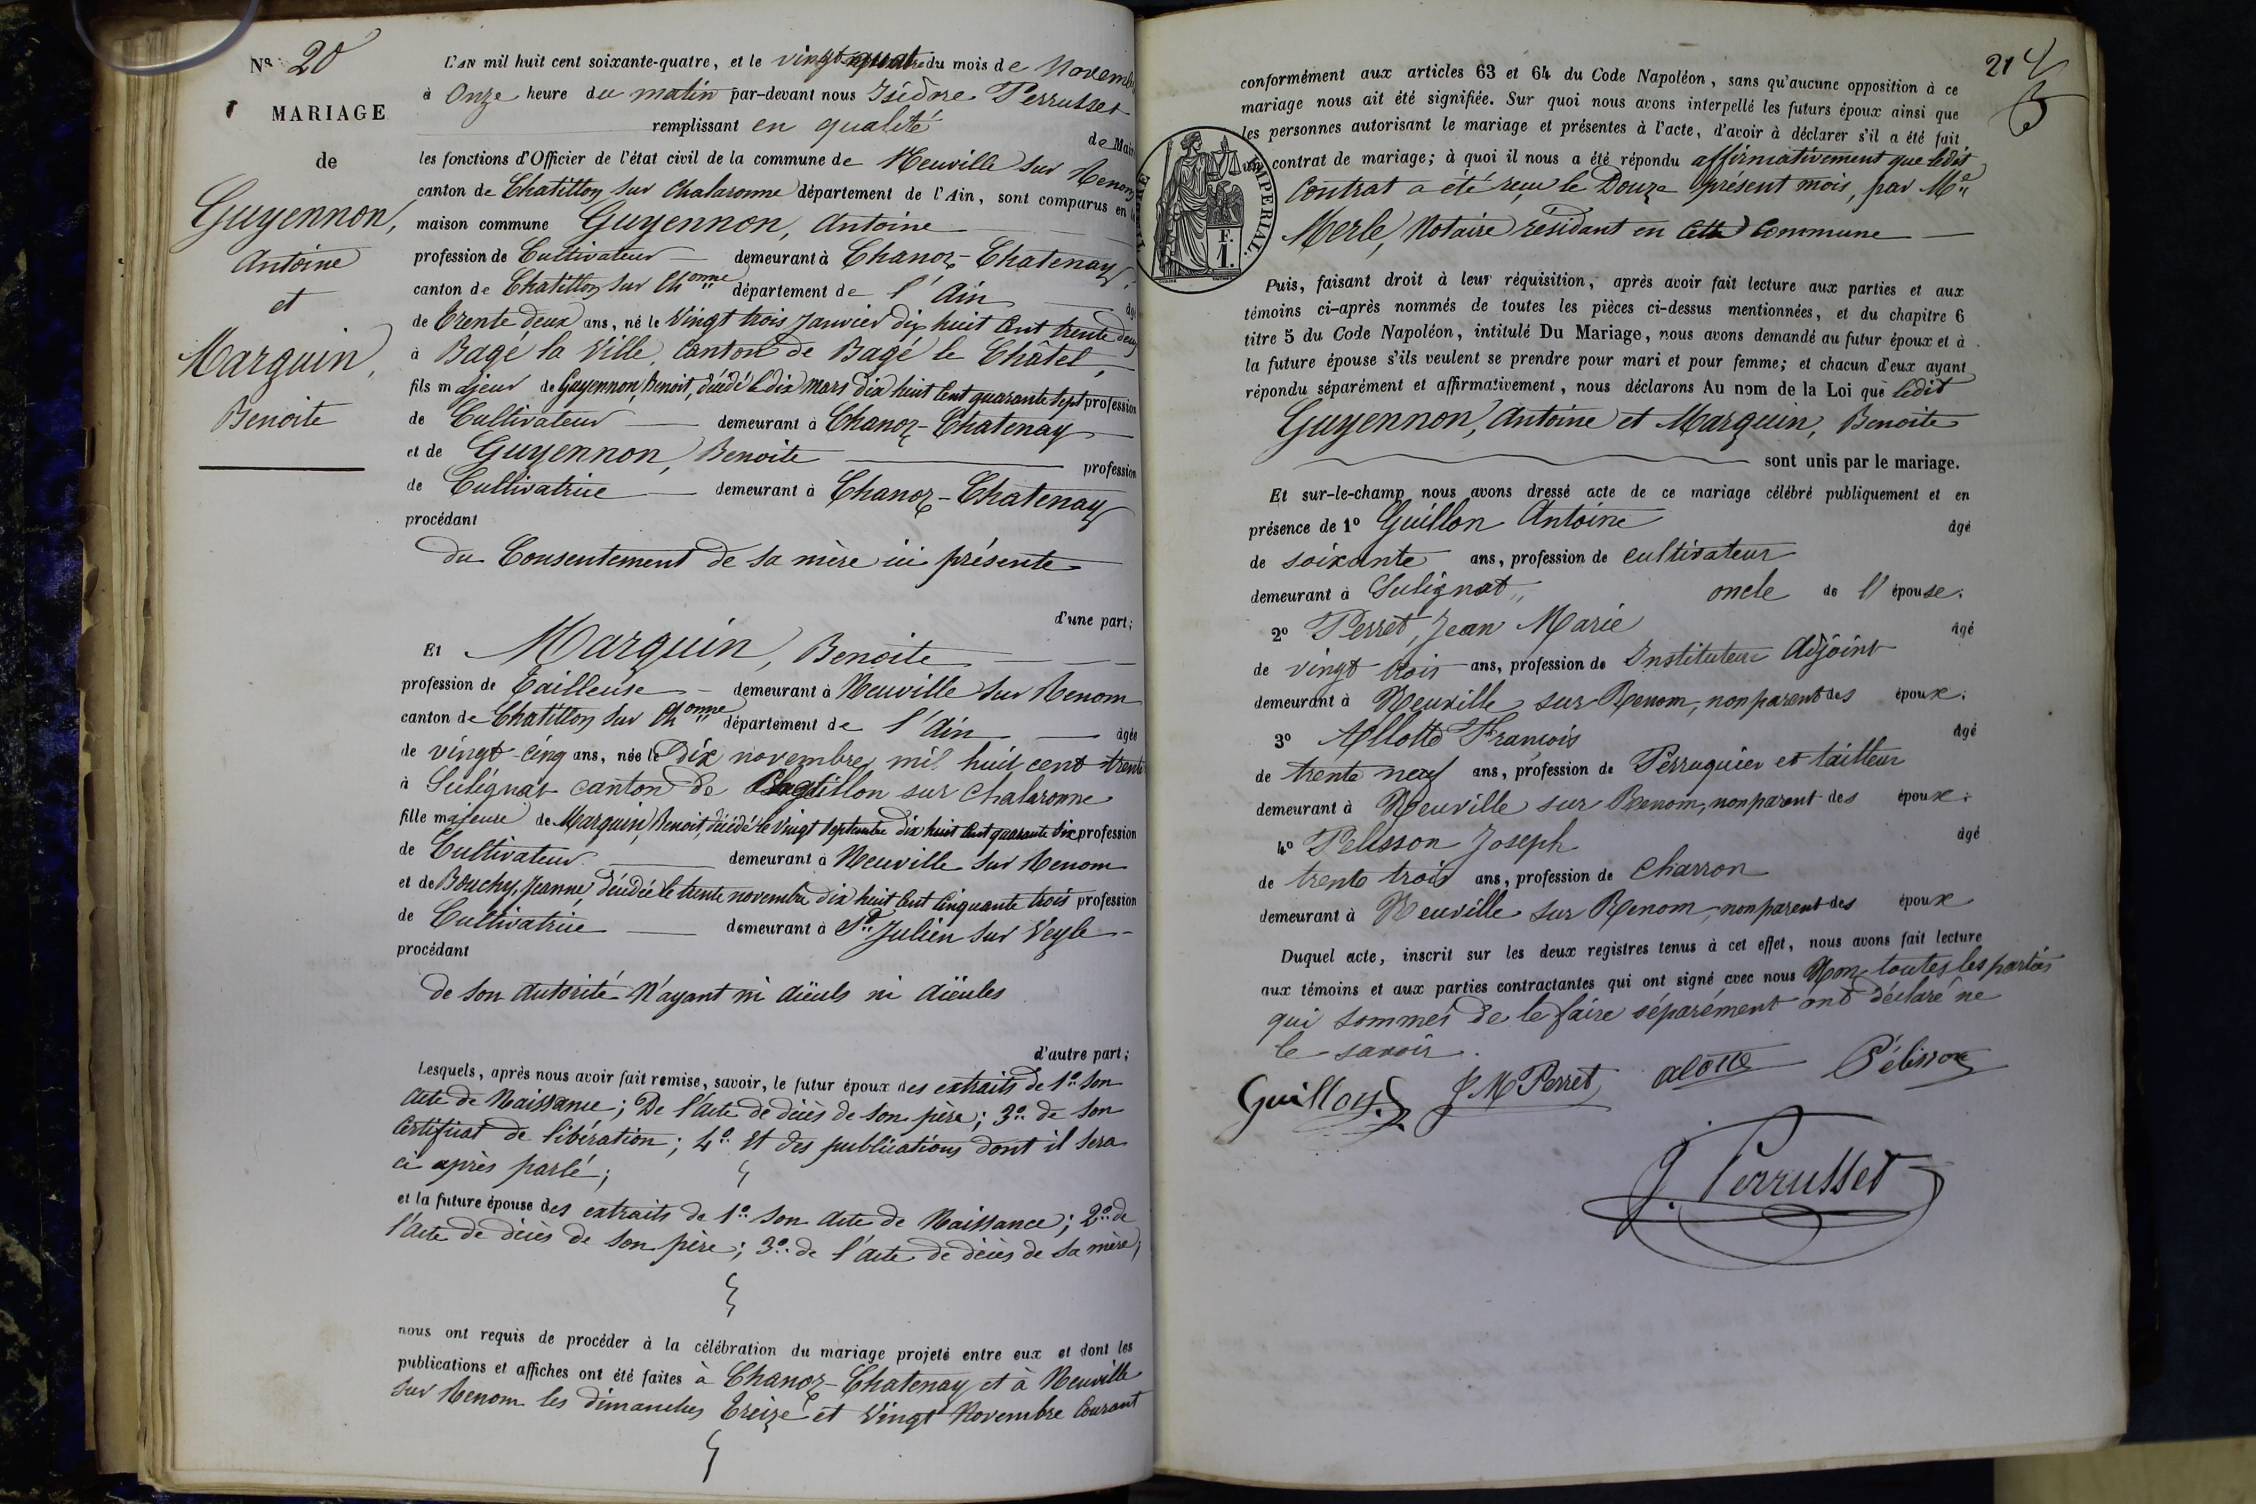 Nº 20
MARIAGE
de
Guyennon,
Antoine
et
Marguin,
Benoite
L'AN mil huit cent soixante-quatre, et le vingt quatre du mois de Novembre
à Onze heure du matin par-devant nous Isidore Perrusset
remplissant en qualité de Maire
les fonctions d'Officier de l'état civil de la commune de Neuville sur Renom
canton de Chatillon sur Chalaronne département de l'Ain, sont comparus en la
maison commune Guyennon, Antoine
profession de Cultivateur demeurant à Chanoz-Chatenay,
canton de Chatillon sur Chonne département de l'Ain âgé
de trente deux ans, né le Vingt trois Janvier dix huit cent trente deux
à Bagé la Ville, Canton de Bagé le Châtel,
fils majeur de Guyennon, Benoit, décédé le dix mars dix huit cent quarante sept profession
de Cultivateur demeurant à Chanoz-Chatenay
et de Guyennon, Benoite profession
de Cultivatrice demeurant à Chanoz-Chatenay
procédant
du Consentement de sa mère ici présente
d'une part;
Et Marguin, Benoite
profession de Tailleuse demeurant à Neuville sur Renom
canton de Chatillon sur Chonne département de l'Ain âgée
de vingt-cinq ans, née le Dix novembre mil huit cent trente
à Sulignat canton de Chatillon sur Chalaronne
fille majeure de Marguin, Benoit, décédé le Vingt Septembre dix huit cent quarante six profession
de Cultivateur demeurant à Neuville sur Renom
et de Bouchy, Jeanne, décédée le trente novembre dix huit cent cinquante trois profession
de Cultivatrice demeurant à St Julien sur Veyle
procédant
de son autorité n'ayant ni aïeuls ni aïeules
d'autre part;
Lesquels, après nous avoir fait remise, savoir, le futur époux des extraits de 1º Son
Acte de Naissance; De l'acte de décès de son père; 3º de son
Certificat de libération; 4º Et des publications dont il sera
ci après parlé;
et la future épouse des extraits de 1º Son Acte de Naissance; 2º de
l'acte de décès de son père; 3º de l'acte de décès de sa mère;
nous ont requis de procéder à la célébration du mariage projeté entre eux et dont les
publications et affiches ont été faites à Chanoz-Chatenay et à Neuville
sur Renom les dimanches Treize et Vingt Novembre Courant
21
conformément aux articles 63 et 64 du Code Napoléon, sans qu'aucune opposition à ce
mariage nous ait été signifiée. Sur quoi nous avons interpellé les futurs époux ainsi que
les personnes autorisant le mariage et présentes à l'acte, d'avoir à déclarer s'il a été fait
un contrat de mariage; à quoi il nous a été répondu affirmativement que ledit
Contrat a été reçu le Douze présent mois, par Me
Merle, Notaire résidant en cette Commune
IMPERIAL.
F.
1.
Puis, faisant droit à leur réquisition, après avoir fait lecture aux parties et aux
témoins ci-après nommés de toutes les pièces ci-dessus mentionnées, et du chapitre 6
titre 5 du Code Napoléon, intitulé Du Mariage, nous avons demandé au futur époux et à
la future épouse s'ils veulent se prendre pour mari et pour femme; et chacun d'eux ayant
répondu séparément et affirmativement, nous déclarons Au nom de la Loi que ledit
Guyennon, Antoine et Marguin, Benoite
sont unis par le mariage.
Et sur-le-champ nous avons dressé acte de ce mariage célébré publiquement et en
présence de 1º Guillon Antoine âgé
de soixante ans, profession de cultivateur
demeurant à Sulignat oncle de l'épouse.
2º Perret, Jean Marie âgé
de vingt trois ans, profession de Instituteur Adjoint
demeurant à Neuville sur Renom, non parent des époux.
3º Allotte François âgé
de trente neuf ans, profession de Perruquier et tailleur
demeurant à Neuville sur Renom, non parent des époux.
4º Pelisson Joseph âgé
de trente trois ans, profession de charron
demeurant à Neuville sur Renom non parent des époux
Duquel acte, inscrit sur les deux registres tenus à cet effet, nous avons fait lecture
aux témoins et aux parties contractantes qui ont signé avec nous Non toutes les parties
qui sommés de le faire séparément ont déclaré ne
le savoir.
Guillon JM Perret alotte Pélisson
J. Perrusset